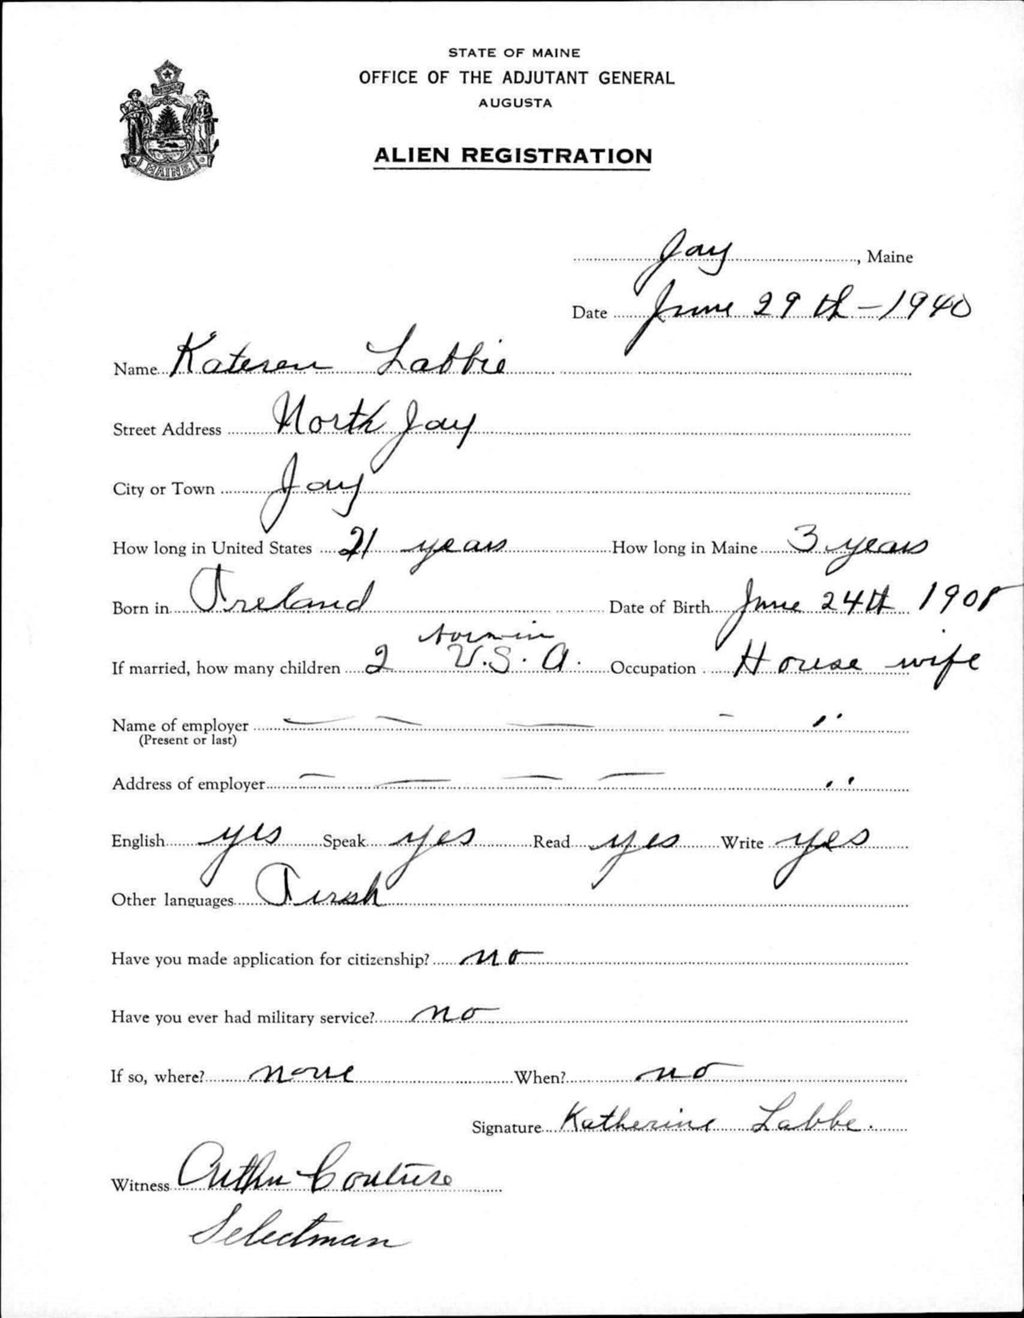 STATE OF MAINE
OFFICE OF THE ADJUTANT GENERAL
AUGUSTA
ALIEN REGISTRATION
MAINE
Jay, Maine
Date June 29th-1940
Name Kateren Labbie
Street Address North Jay
City or Town Jay
How long in United States 21 years How long in Maine 3 years
Born in Ireland Date of Birth June 24th 1908
born in
If married, how many children 2 U.S.A. Occupation House wife
Name of employer
(Present or last)
Address of employer
English yes Speak yes Read yes Write yes
Other languages Irish
Have you made application for citizenship? no
Have you ever had military service? no
If so, where? none When? no
Signature Katherine Labbe.
Witness Arthur Couture
Selectman